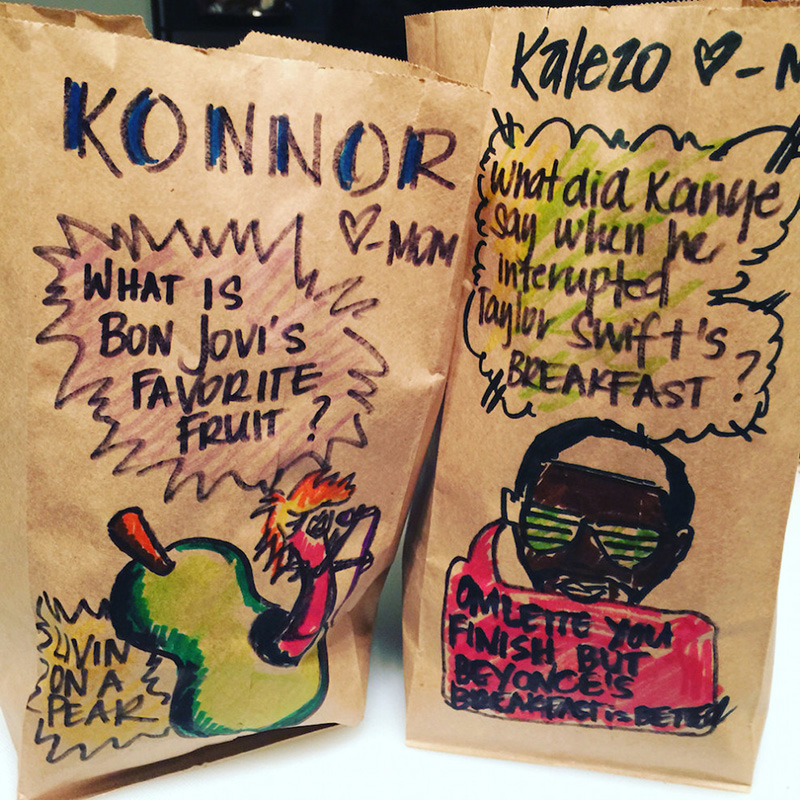 KONNOR
♡-MOM
WHAT IS
BON JOVI'S
FAVORITE
FRUIT?
LIVIN
ON A
PEAR
Kalezo ♡-M
What did Kanye
say when he
interupted
Taylor Swift's
BREAKFAST?
OMLETTE YOU
FINISH, BUT
BEYONCE'S
BREAKFAST is BETTER